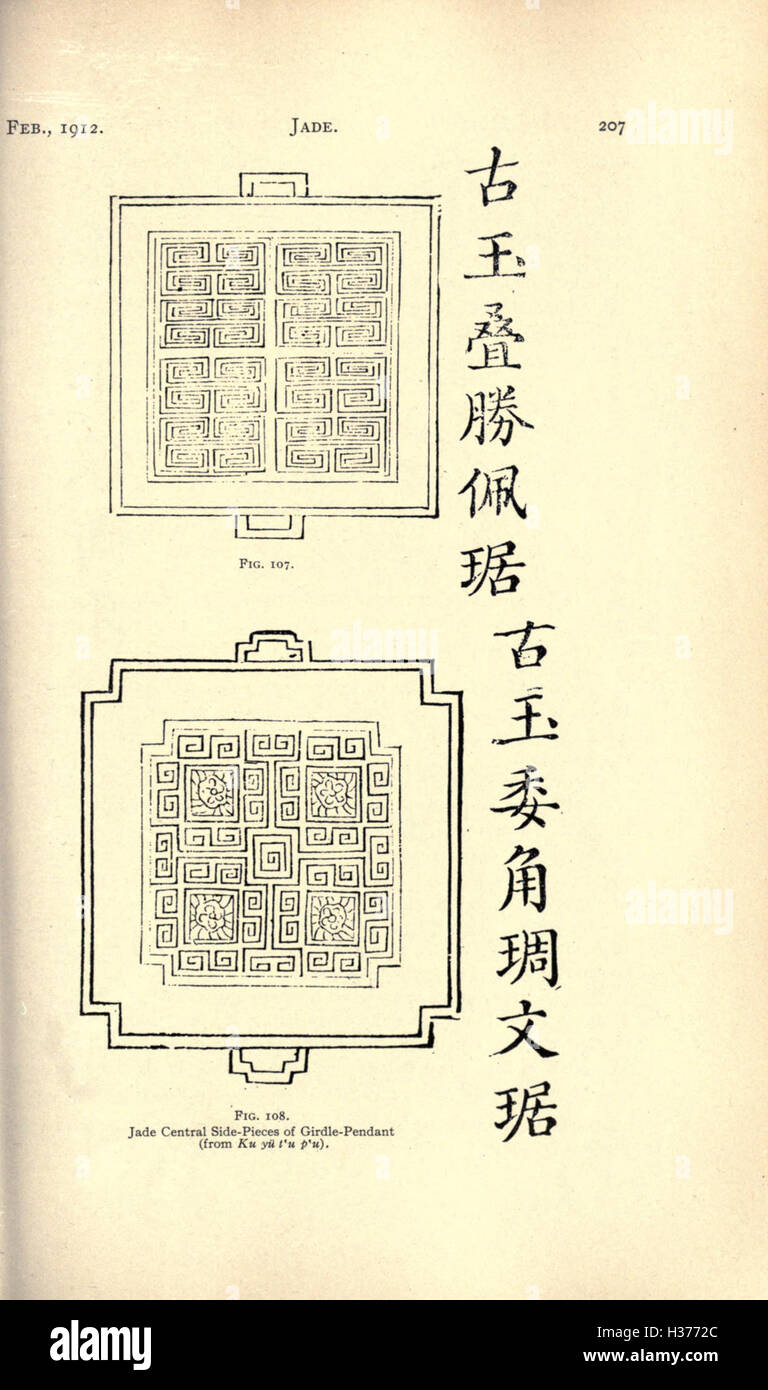 FEB., 1912. JADE. 207
古玉叠勝佩琚
FIG. 107.
古玉委角琱文琚
FIG. 108.
Jade Central Side-Pieces of Girdle-Pendant
(from Ku yü t‘u p‘u).
alamy
alamy
alamy
alamy
a
a
a
a
alamy
H3772C
www.alamy.com